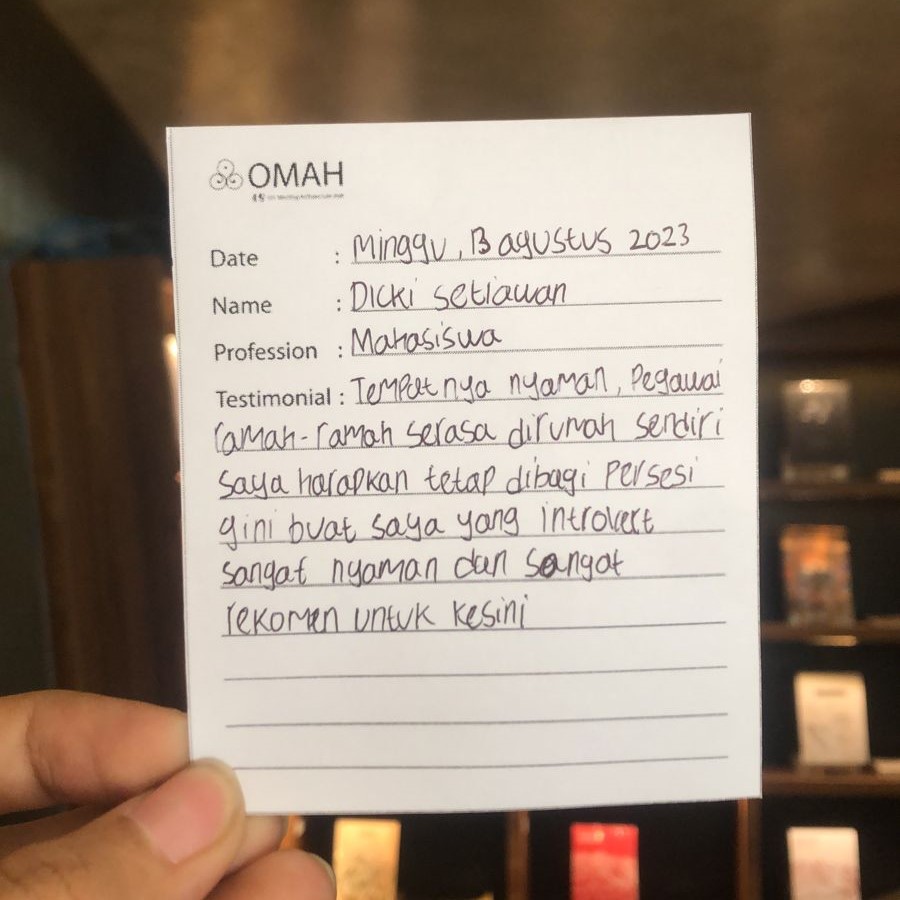 OMAH
Date : Minggu, 13 agustus 2023
Name : Dicki setiawan
Profession : Mahasiswa
Testimonial : Tempatnya nyaman, Pegawai
ramah-ramah serasa dirumah sendiri
saya harapkan tetap dibagi persesi
gini buat saya yang introvert
sangat nyaman dan sangat
rekomen untuk kesini